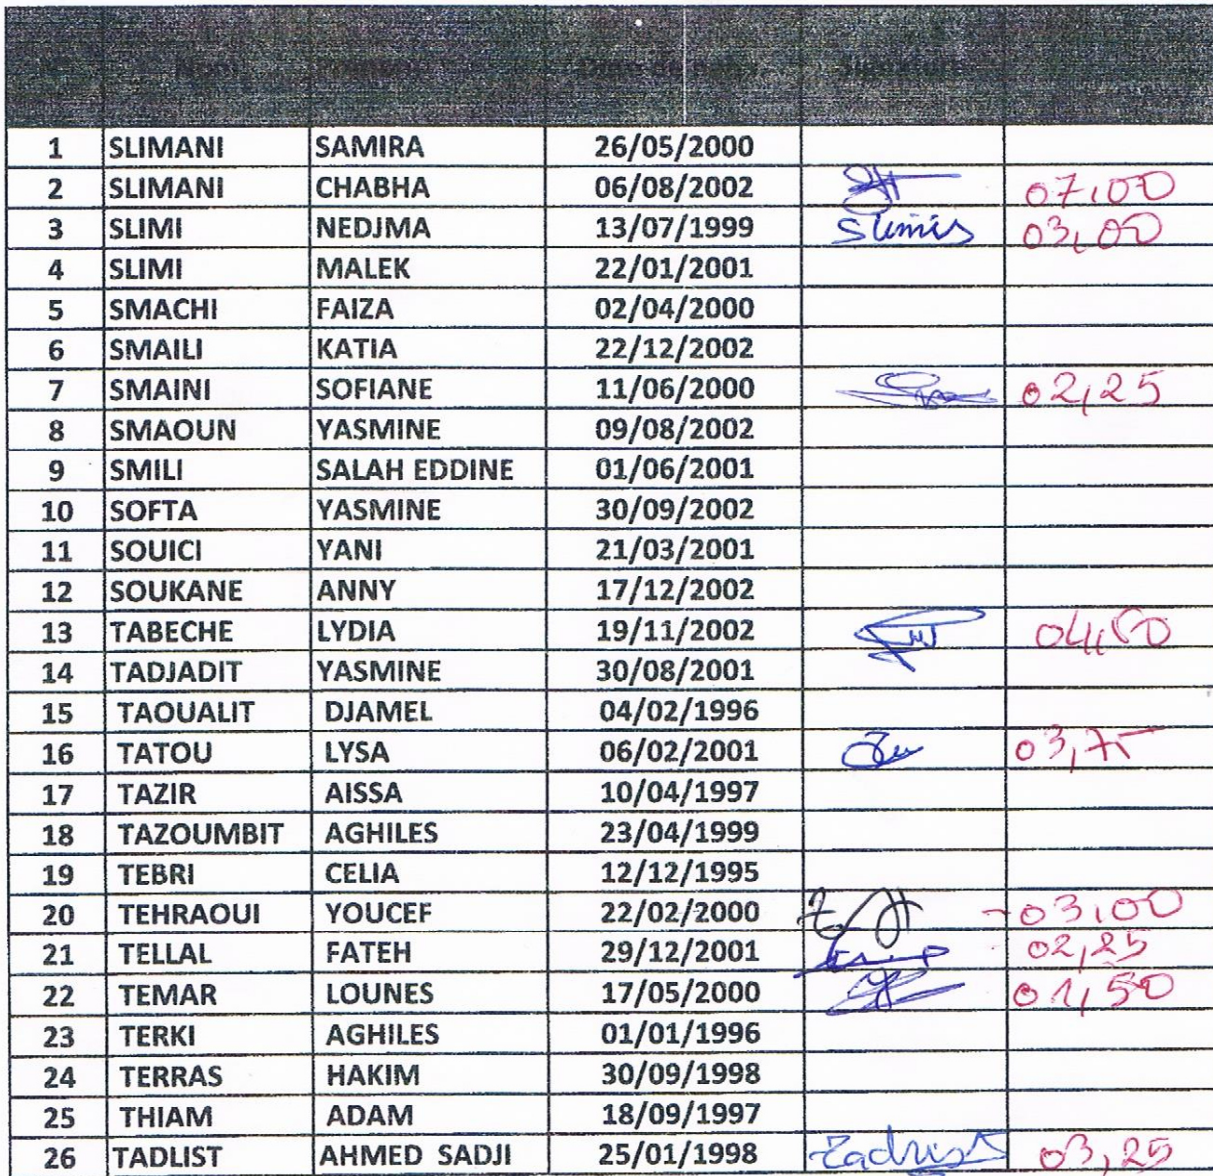 Nom Prénom Date de naiss Signature
1 SLIMANI SAMIRA 26/05/2000
2 SLIMANI CHABHA 06/08/2002 07,00
3 SLIMI NEDJMA 13/07/1999 Slimi 03,00
4 SLIMI MALEK 22/01/2001
5 SMACHI FAIZA 02/04/2000
6 SMAILI KATIA 22/12/2002
7 SMAINI SOFIANE 11/06/2000 02,25
8 SMAOUN YASMINE 09/08/2002
9 SMILI SALAH EDDINE 01/06/2001
10 SOFTA YASMINE 30/09/2002
11 SOUICI YANI 21/03/2001
12 SOUKANE ANNY 17/12/2002
13 TABECHE LYDIA 19/11/2002 04,50
14 TADJADIT YASMINE 30/08/2001
15 TAOUALIT DJAMEL 04/02/1996
16 TATOU LYSA 06/02/2001 03,75
17 TAZIR AISSA 10/04/1997
18 TAZOUMBIT AGHILES 23/04/1999
19 TEBRI CELIA 12/12/1995
20 TEHRAOUI YOUCEF 22/02/2000 03,00
21 TELLAL FATEH 29/12/2001 02,25
22 TEMAR LOUNES 17/05/2000 01,50
23 TERKI AGHILES 01/01/1996
24 TERRAS HAKIM 30/09/1998
25 THIAM ADAM 18/09/1997
26 TADLIST AHMED SADJI 25/01/1998 Tadlist 03,25